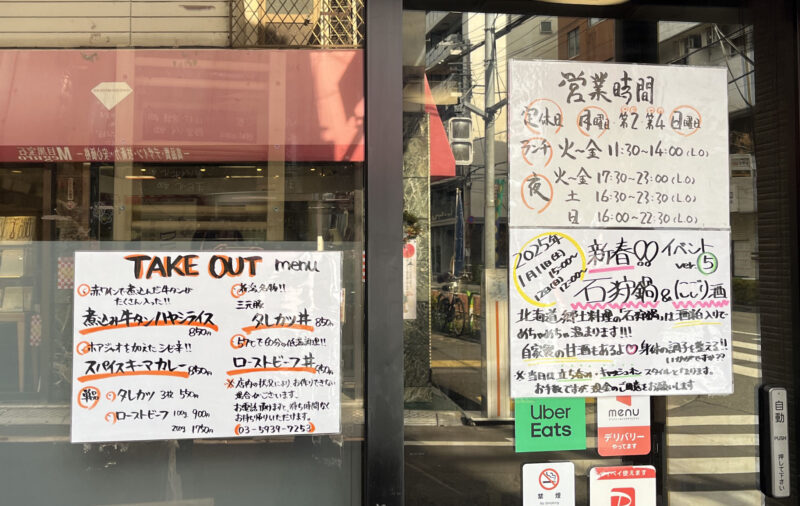 TAKE OUT menu
赤ワインで煮込んだ牛タンが
たくさん入った!!
煮込み牛タンハヤシライス
850円
スパイスキーマカレー
850円
タレカツ 3枚 550円
ローストビーフ 100g 900円
200g 1750円
当店名物!!
三元豚
タレカツ丼 850円
57℃で60分の低温調理!!
ローストビーフ丼 850円
※店内の状況によりお作りできない
場合がございます。
お電話頂けますと、待ち時間なく
お持ち帰りいただけます。
03-5939-7253
営業時間
定休日 月曜日 第2第4日曜日
ランチ 火〜金 11:30〜14:00(L.O)
夜 火〜金 17:30〜23:00(L.O)
土 16:30〜23:00(L.O)
日 16:00〜22:30(L.O)
2025年
1月11日(土)
15:00〜
12日(日)
12:00〜
新春!!イベント
ver.5
石狩鍋&にごり酒
北海道郷土料理の石狩鍋は酒粕入りで
めちゃめちゃ温まります!!!
自家製の甘酒もあるよ♡身体の調子を整える!!
いかがですか??
※当日は立ち呑み・キャッシュオンスタイルとなります。
お手数ですが現金のご用意をお願いします
Uber
Eats
menu
デリバリー
やってます
禁煙
ペイペイ使えます
自動
PUSH
押して下さい